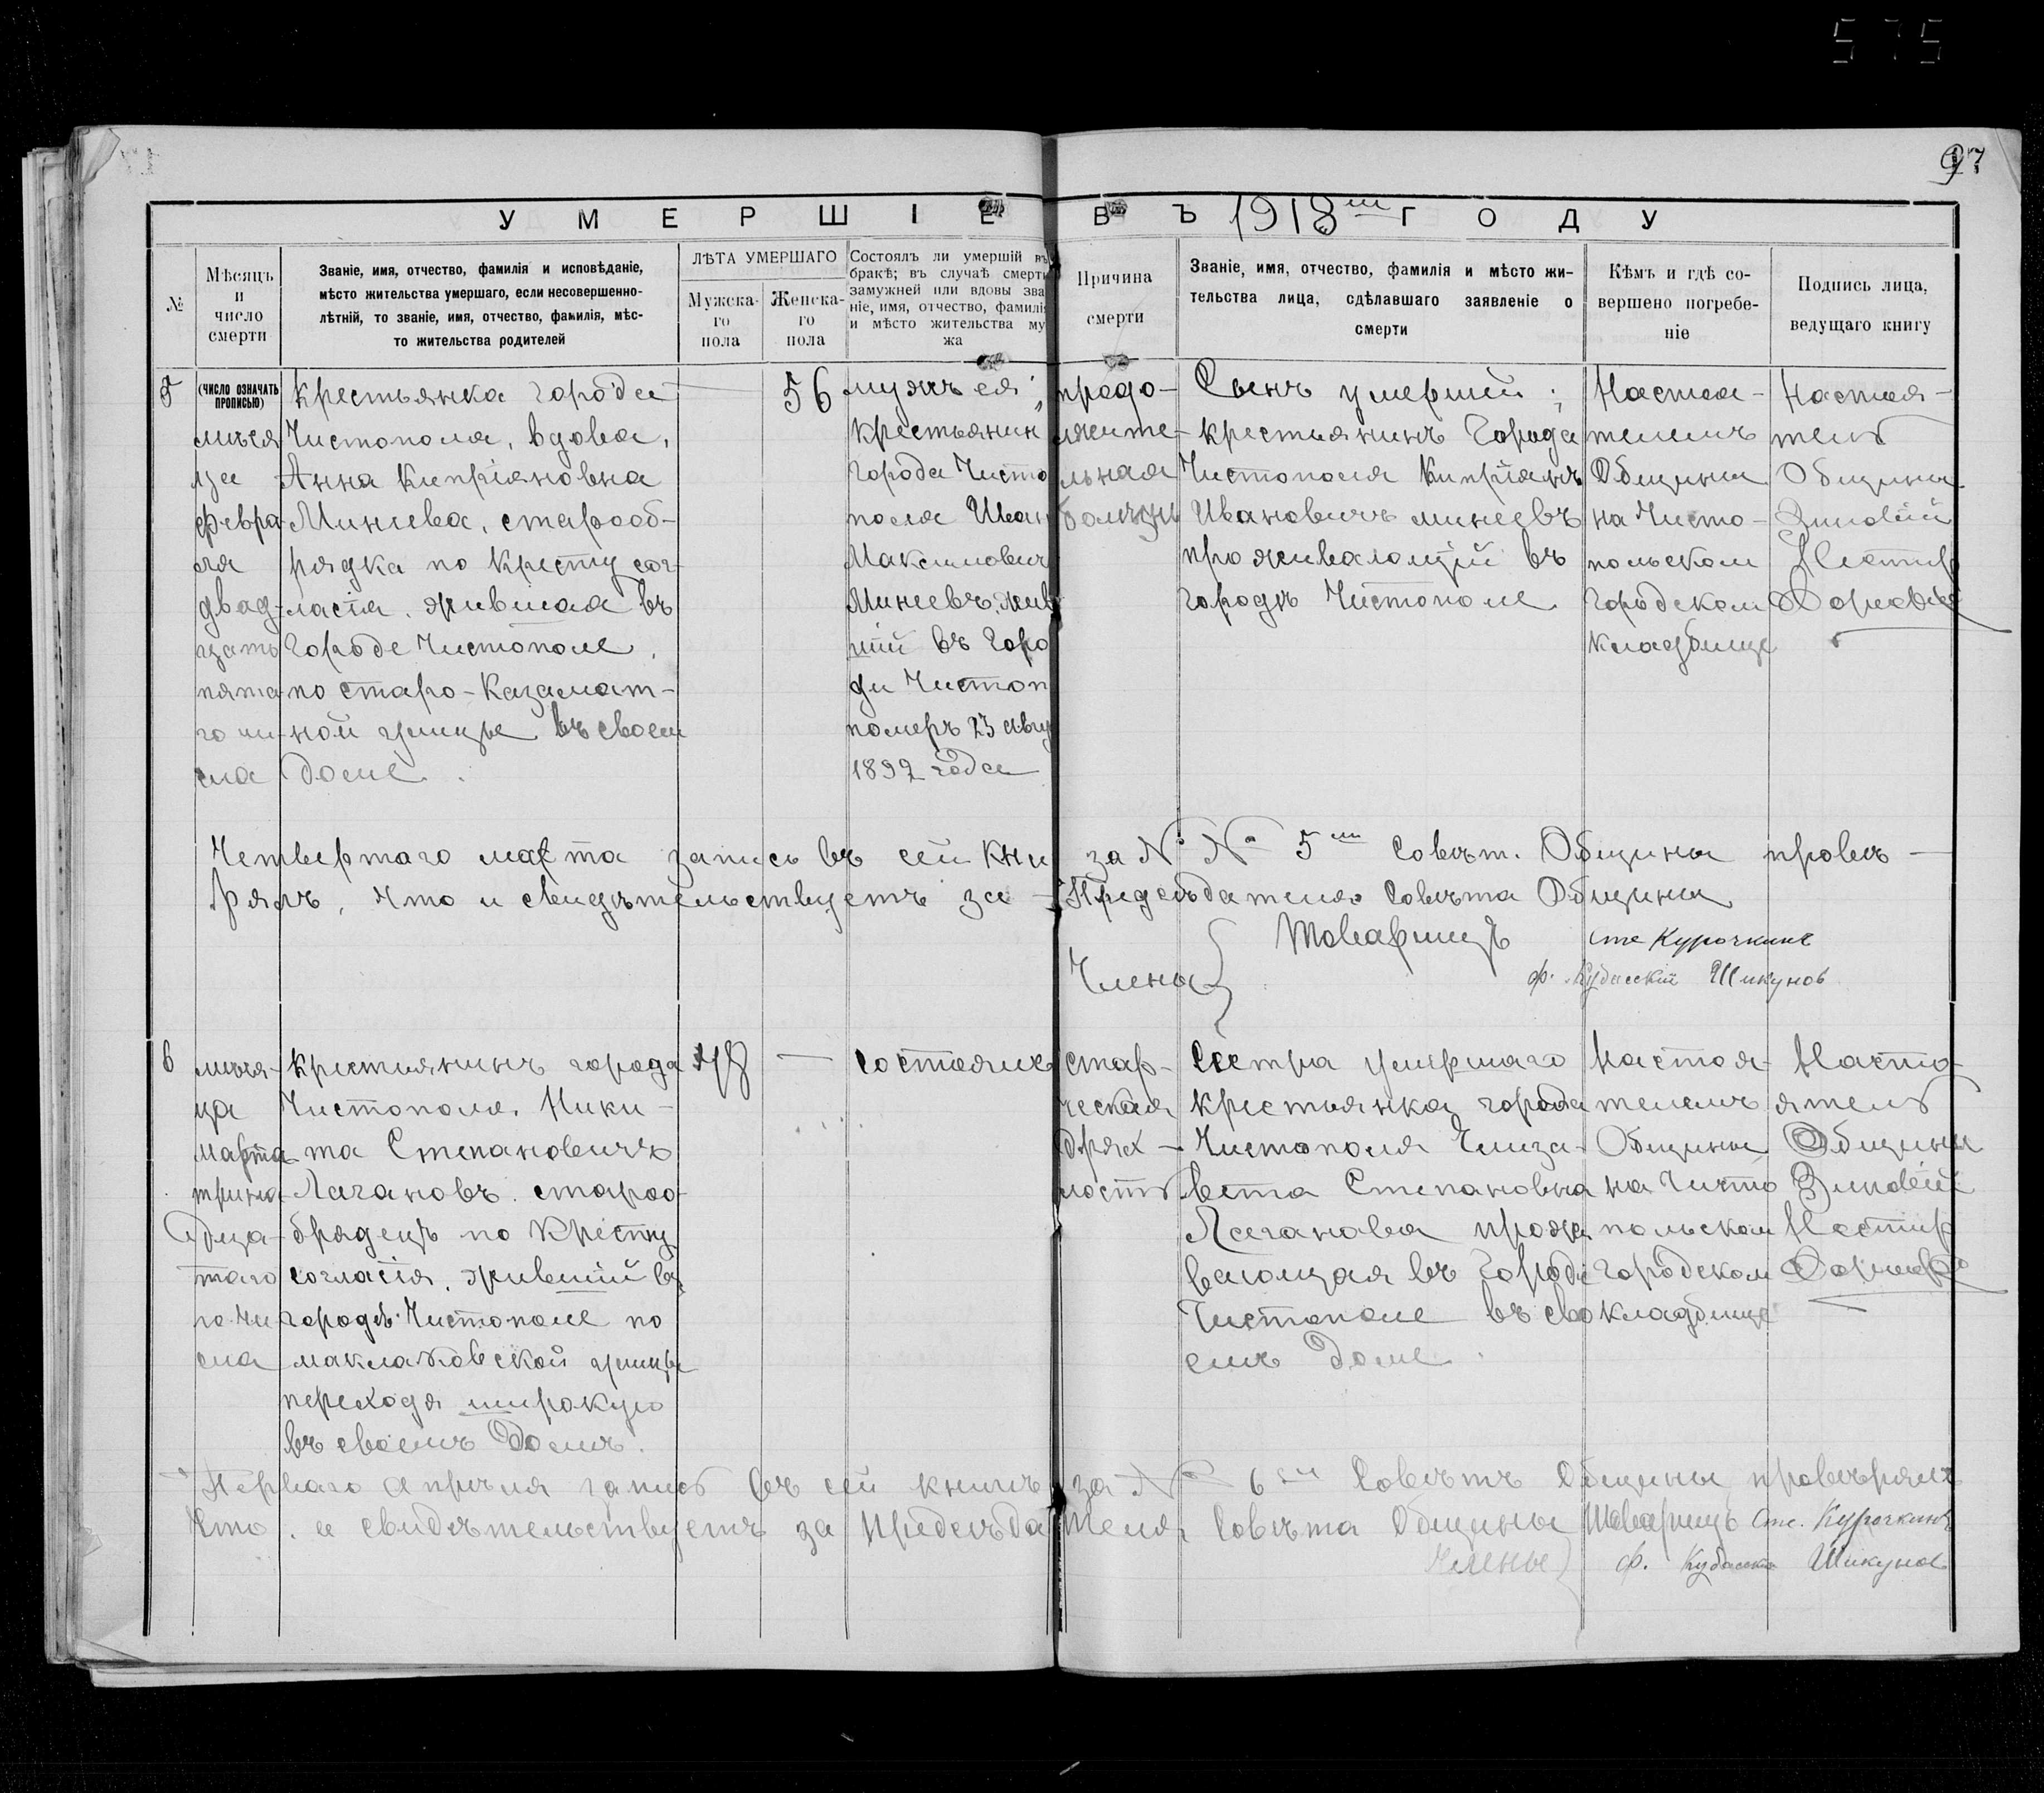 575
97
УМЕРШІЕ ВЪ 1918 ГОДУ
№
Мѣсяцъ
и
число
смерти
Званіе, имя, отчество, фамилія и исповѣданіе,
мѣсто жительства умершаго, если несовершенно-
лѣтній, то званіе, имя, отчество, фамилія, мѣс-
то жительства родителей
ЛѢТА УМЕРШАГО
Мужска-
го
пола
Женска-
го
пола
Состоялъ ли умершій въ
бракѣ; въ случаѣ смерти
замужней или вдовы зва
ніе, имя, отчество, фамилія
и мѣсто жительства му
жа
Причина
смерти
Званіе, имя, отчество, фамилія и мѣсто жи-
тельства лица, сдѣлавшаго заявленіе о
смерти
Кѣмъ и гдѣ со-
вершено погребе-
ніе
Подпись лица,
ведущаго книгу
5
(ЧИСЛО ОЗНАЧАТЬ
ПРОПИСЬЮ)
мѣся
ца
февра-
ля
двад-
цать
пята-
го чи-
сла
крестьянка города
Чистополя, вдова,
Анна Кипріяновна
Минеева, старооб-
рядка по Кресту сог-
ласія. жившая въ
Городе Чистополе,
по старо-Казамат-
ной улицѣ въ своем
Доме.
56
мужъ ея;
Крестьянин
города Чисто
поля Иван
Максимович
Минеевъ, жив
шій въ Горо
ди Чистоп
померъ 23 авгу
1892 года
продо-
лжите-
льная
болѣзнь
Сынъ умершей;
крестьянинъ Города
Чистополя Кипріянъ
Ивановичъ минеевъ
проживающій въ
городѣ Чистополе
Настоя-
телемъ
Общины
на Чисто-
польском
Городском
Кладбище
Настоя-
тель
Общины
Зиновій
Нестир
Четвертаго марта запись въ сей Кни за № 5 Совѣт. Общины провѣ-
рялъ, что и свидѣтельствуетъ за - Предсѣдателя Совѣта Общины
Товарищъ Сте Курочкинъ
Члены Ф. Кубасскій Шикунов
6
мѣся-
ца
марта
трина-
дца-
таго
го чи
сла
Крестьянинъ города
Чистополя. Ники-
та Степановичъ
Лагановъ. староо-
брядецъ по Кресту
согласія, жившій въ
городѣ Чистополе по
маклаковской улицѣ
переходя широкую
въ своемъ Домѣ.
78
—
состоялъ
стар-
ческая
дрях-
лость
Сестра умершаго
Крестьянка города
Чистополя Елиза-
вета Степановна
Лаганова прожи
вающая въ Городе
Чистополе въ сво
емъ Доме.
Настоя-
телемъ
Общины
на Чисто
польском
Городском
кладбище
Насто-
ятель
Общины
Зиновій
Нестир
Перваго Апрѣля запись въ сей книгѣ за № 6 Совѣтъ Общины провѣрялъ
Что и свидѣтельствуетъ за Предсѣдателя Совѣта Общины Товарищъ Сте. Курочкинъ
Члены Ф. Кубасскій Шикунов